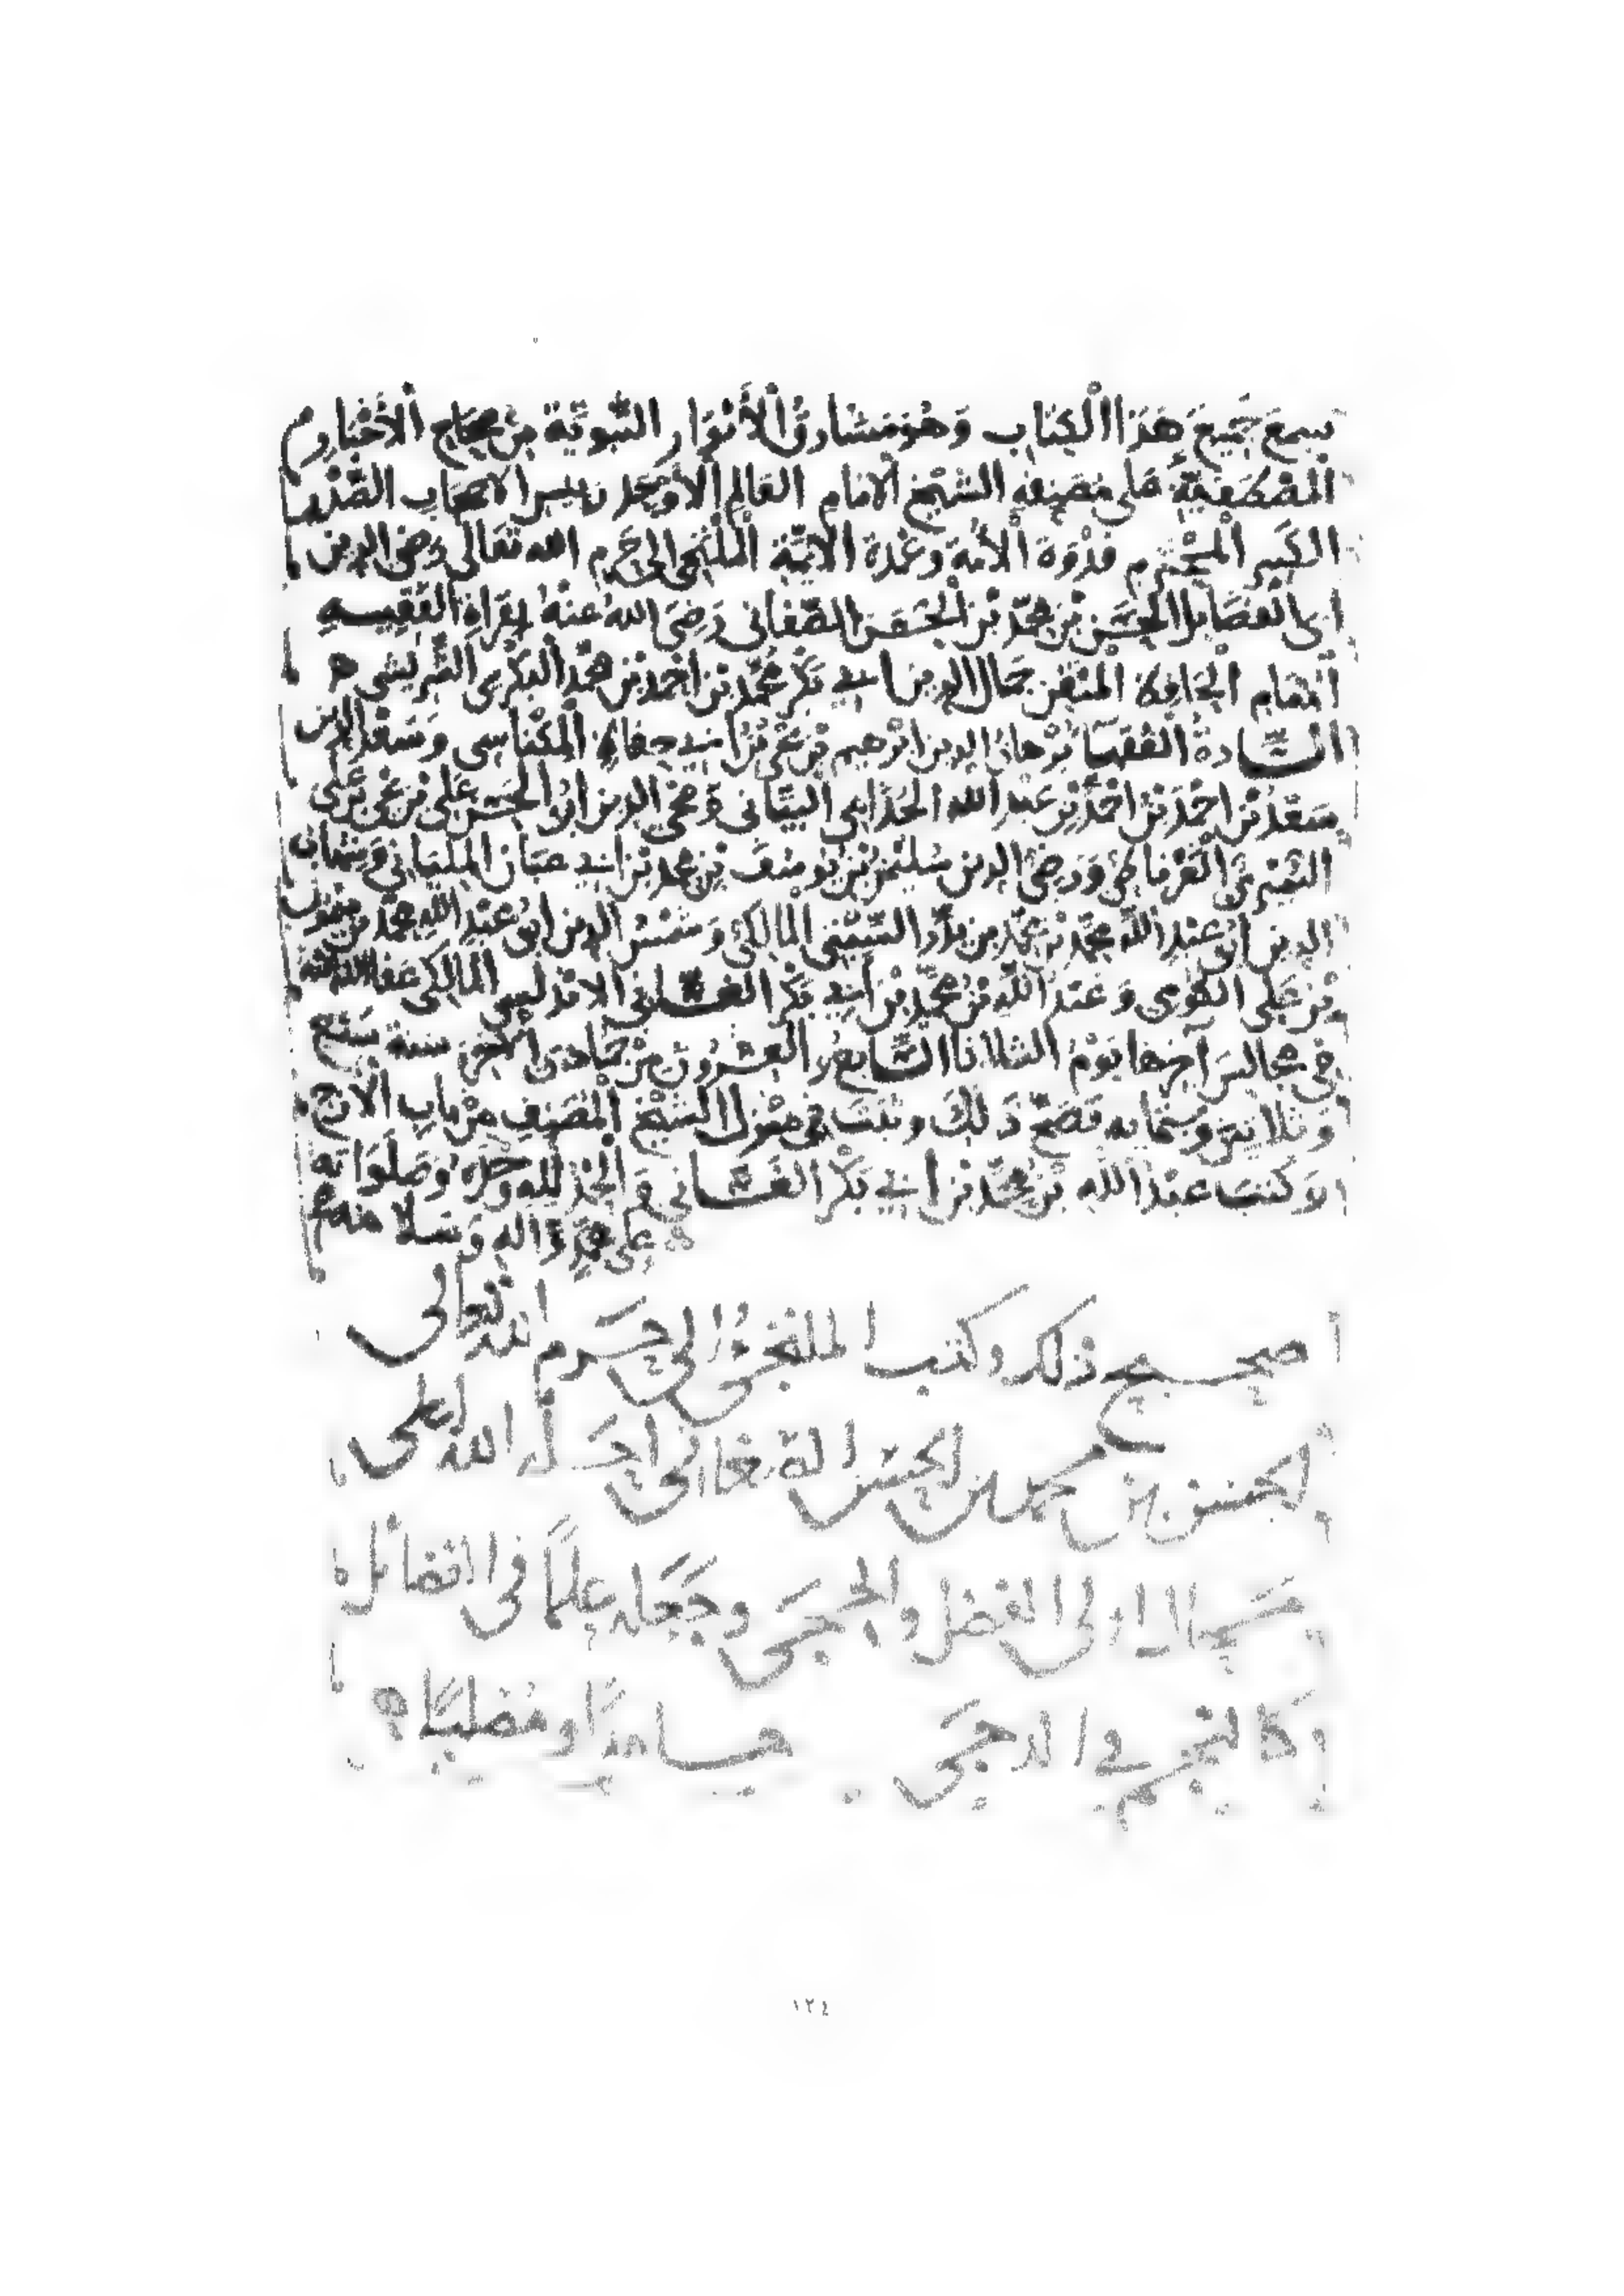 سمع جميع هذا الكتاب وهو مشارق الأنوار النبوية من صحاح الأخبار
المصطفوية على مصنفه الشيخ الإمام العالم الأوحد رئيس الأصحاب الصدر
الكبير المحترم قدوة الأمة وعمدة الأئمة الملتجئ إلى حرم الله تعالى رضي الدين
أبي الفضائل الحسن بن محمد بن الحسن الصغاني رضي الله عنه بقراءة الفقيه
الإمام الحافظ المتقن جمال الدين أبي بكر محمد بن أحمد بن محمد البكري الشريشي
السادة الفقهاء برهان الدين إبرهيم بن يحيى بن أبي حفاظ المكناسي وسعد الدين
سعد بن أحمد بن أحمد بن عبد الله الجذامي البياني ومحيي الدين أبو الحسن علي بن علي
النميري الغرناطي ورضي الدين سليمن بن يوسف بن محمد بن أبي الملياني
الدين أبو عبد الله محمد بن محمد بن المالكي وشمس الدين أبو عبد الله محمد بن
بن علي وعبد الله بن محمد بن أبي بكر الغساني الأندلسي المالكي عفا الله عنه
في مجالس آخرها يوم الثلاثا السابع والعشرون من جمادى الآخرة سنة سبع
وثلاثين وستمايه فصح ذلك وثبت في منزل الشيخ المصنف من باب الأزج
وكتب عبد الله بن محمد بن أبي بكر الغساني والحمد لله وحده وصلواته
على محمد وآله وسلامه
صحيح ذلك وكتب الملتجئ إلى حرم الله تعالى
الحسن بن محمد بن الحسن الصغاني أحله الله
إلى الفضل والحجى وجعله علما في الفضائل
كالنجم في الدجى حامدا ومصليا
١٢٤